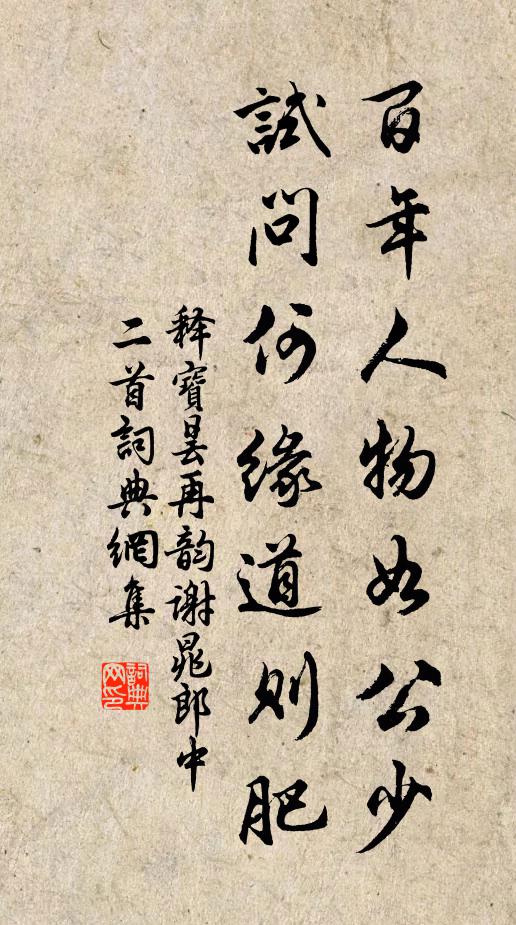 百年人物如公少
試問何緣道則肥
释寶昙再韵谢晁郎中
二首詞典網集
詞典网印